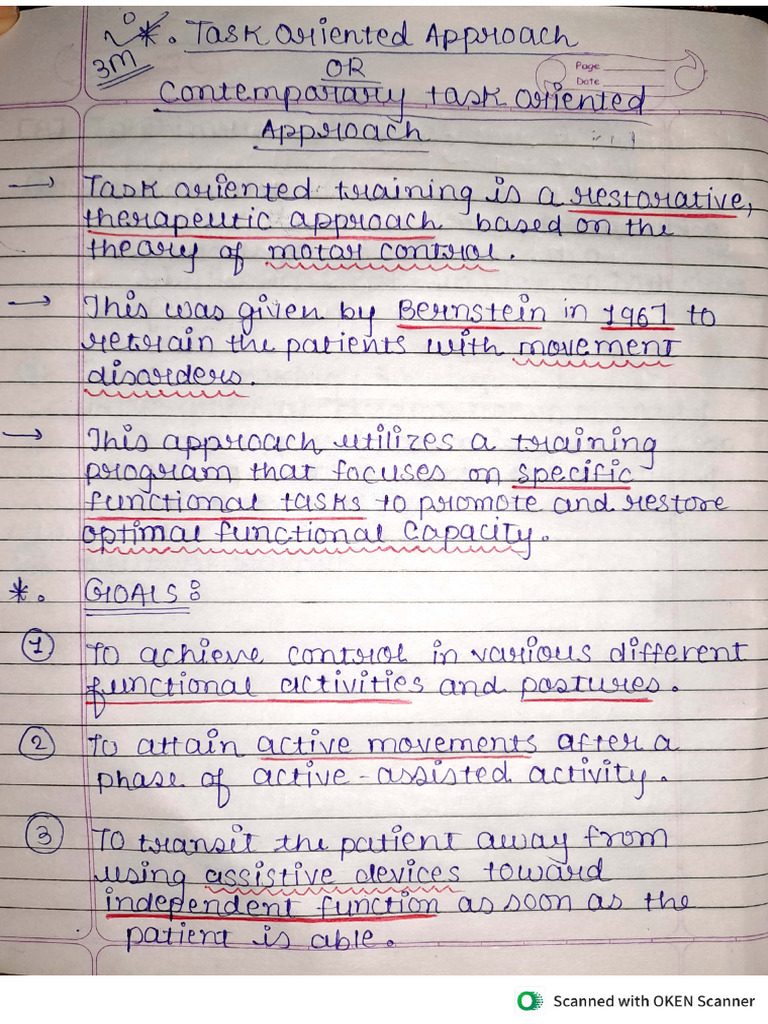 *. Task oriented Approach
3M
OR
Page
Date
Contemparary task oriented
Approach
→ Task oriented training is a restorative,
therapeutic approach based on the
theary of motar control.
→ This was given by Bernstein in 1967 to
retrain the patients with movement
disarders.
→ This approach utilizes a training
program that focuses on specific
functional tasks to promote and restore
optimal functional capacity.
*. GOALS :
① To achieve control in various different
functional activities and postures.
② To attain active movements after a
phase of active-assisted activity.
③ To transit the patient away from
using assistive devices toward
independent function as soon as the
patient is able.
Scanned with OKEN Scanner